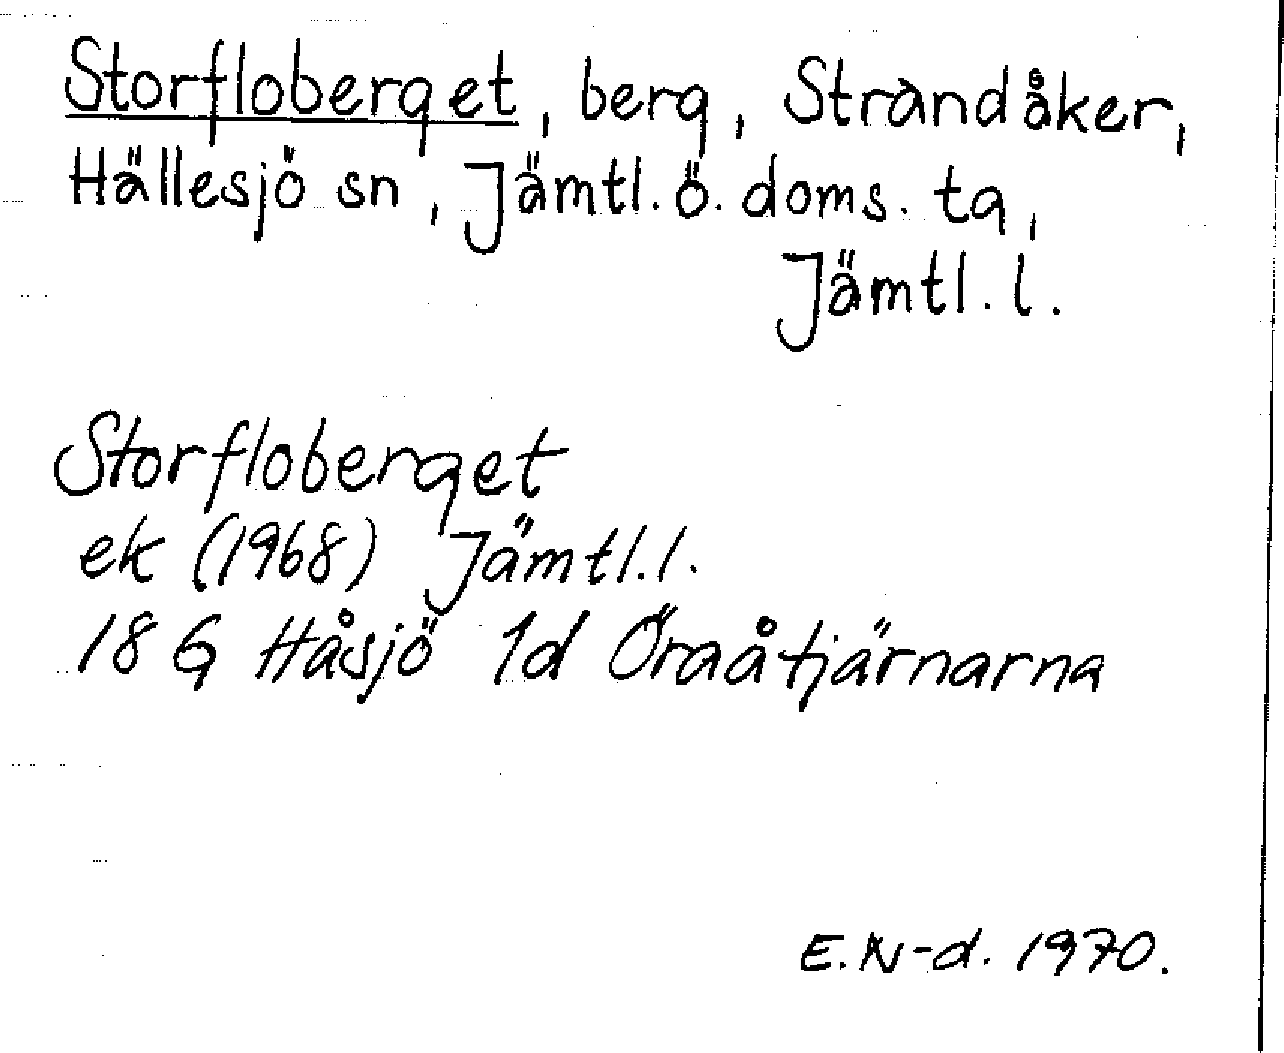 Storfloberget, berg, Strandåker,
Hällesjö sn, Jämtl. ö. doms. ta,
Jämtl. l.
Storfloberget
ek (1968) Jämtl. l.
18 G Håsjö 1d Öraåtjärnarna
E. N-d. 1970.